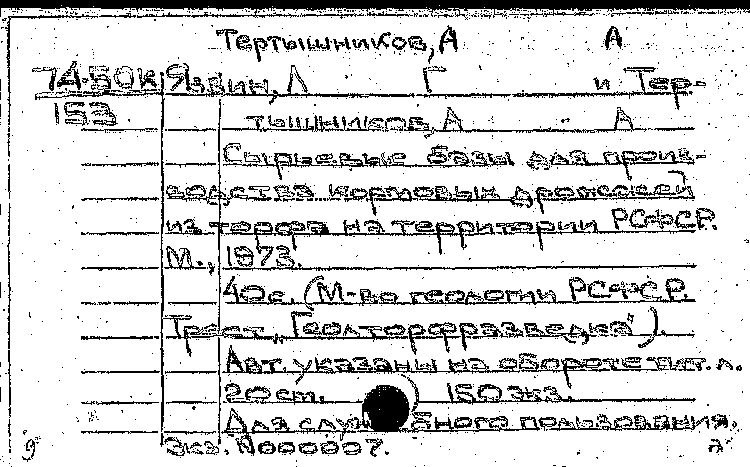 Тертышников, А А
74-50К Явбин, Л Г и Тер-
153 тышников, А А
Сырьевые базы для произ-
водства кормовых дрожжей
из торфа на территории РСФСР.
М., 1973.
40с. (М-во геологии РСФСР.
Трест „Геолторфразведка").
Авт. указаны на обороте тит. л.
20см. 150 экз.
Для служебного пользования.
Экз. N000007.